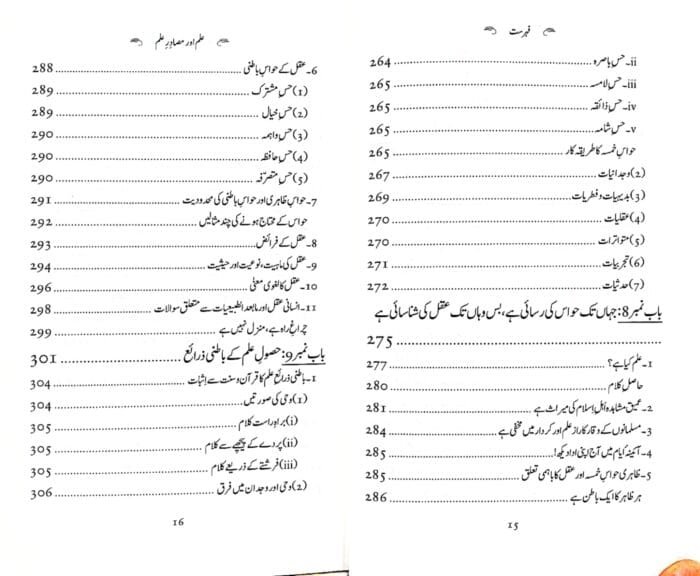 فہرست
ii۔حس باصرہ ........ 264
iii۔حس لامسہ ........ 265
iv۔حس ذائقہ ........ 265
v۔حس شامہ ........ 265
حواسِ خمسہ کا طریقہ کار ........ 265
(2) وجدانیات ........ 267
(3) بدیہیات و فطریات ........ 269
(4) عقلیات ........ 270
(5) متواترات ........ 270
(6) تجربیات ........ 271
(7) حدثیات ........ 272
باب نمبر8: جہاں تک حواس کی رسائی ہے، بس وہاں تک عقل کی شناسائی ہے
........ 275
1۔علم کیا ہے؟ ........ 277
حاصل کلام ........ 280
2۔عمیق مشاہدہ اہلِ اسلام کی میراث ہے ........ 281
3۔مسلمانوں کے وقار کا راز علم اور کردار میں مخفی ہے ........ 284
4۔آئینہ ایام میں آج اپنی ادا دیکھ! ........ 285
5۔ظاہری حواسِ خمسہ اور عقل کا باہمی تعلق ........ 285
ہر ظاہر کا ایک باطن ہے ........ 286
15
علم اور مصادرِ علم
6۔عقل کے حواسِ باطنی ........ 288
(1) حس مشترک ........ 289
(2) حس خیال ........ 289
(3) حس واہمہ ........ 290
(4) حس حافظہ ........ 290
(5) حس متصرفہ ........ 290
7۔حواسِ ظاہری اور حواسِ باطنی کی محدودیت ........ 291
حواس کے محتاج ہونے کی چند مثالیں ........ 292
8۔عقل کے فرائض ........ 293
9۔عقل کی ماہیت، نوعیت اور حیثیت ........ 294
10۔عقل کا لغوی معنیٰ ........ 296
11۔انسانی عقل اور مابعد الطبیعیات سے متعلق سوالات ........ 298
چراغِ راہ ہے، منزل نہیں ہے ........ 299
باب نمبر9: حصولِ علم کے باطنی ذرائع ........ 301
1۔باطنی ذرائع علم کا قرآن و سنت سے اِثبات ........ 304
(1) وحی کی صورتیں ........ 304
(i) براہِ راست کلام ........ 305
(ii) پردے کے پیچھے سے کلام ........ 305
(iii) فرشتے کے ذریعے کلام ........ 305
(2) وحی اور وجدان میں فرق ........ 306
16